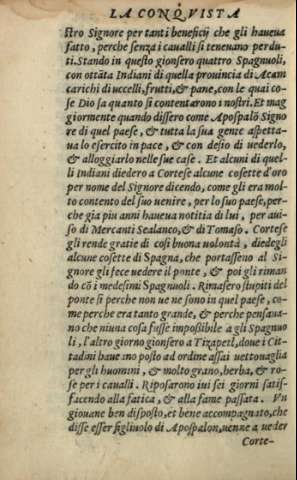 LA CONQVISTA
stro Signore per tanti beneficij che gli haueua
fatto, perche senza i caualli si teneuano perdu-
ti. Stando in questo gionsero quattro Spagnuoli,
con ottāta Indiani di quella prouincia di Acam
carichi di uccelli, frutti, & pane, con le quai co-
se Dio sa quanto si contentarono i nostri. Et mag
giormente quando dissero come Apospalō Signo
re di quel paese, & tutta la sua gente aspetta-
ua lo esercito in pace, & con desio di uederlo,
& alloggiarlo nelle sue case. Et alcuni di quel-
li Indiani diedero a Cortese alcune cosette d'oro
per nome del Signore dicendo, come gli era mol-
to contento del suo uenire, per lo suo paese, per-
che gia piu anni haueua notitia di lui, per aui-
so di Mercanti Sealanco, & di Tomaso. Cortese
gli rende gratie di cosi buona uolontà, diedegli
alcune cosette di Spagna, che portasseno al Si-
gnore gli fece uedere il ponte, & poi gli riman
do cō i medesimi Spagnuoli. Rimasero stupiti del
ponte si perche non ue ne sono in quel paese, co-
me perche era tanto grande, & perche pensaua-
no che niuna cosa fusse impossibile a gli Spagnuo
li, l'altro giorno gionsero a Tizapetl, doue i Cit-
tadini haueano posto ad ordine assai uettouaglia
per gli huomini, & molto grano, herba, & ro-
se per i caualli. Riposarono iui sei giorni satis-
facendo alla fatica, & alla fame passata. Vn
giouane ben disposto, et bene accompagnato, che
disse esser figliuolo di Apospalon, uenne a ueder
Corte-